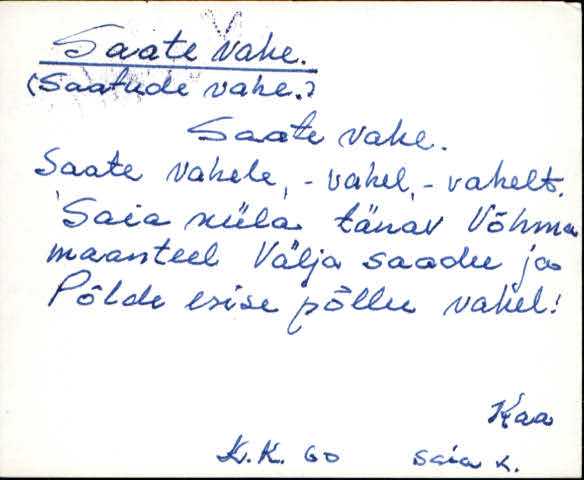 Saate vahe.
(Saatude vahe.)
Saate vahe.
Saate vahele, - vahel, - vahelt.
Saia küla tänav Võhma
maanteel Välja saadu ja
Põlde esise põllu vahel!
Kaa
K.K. 60 Saia k.